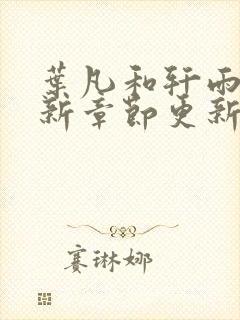 葉凡和轩雨
新章節更新
赛琳娜